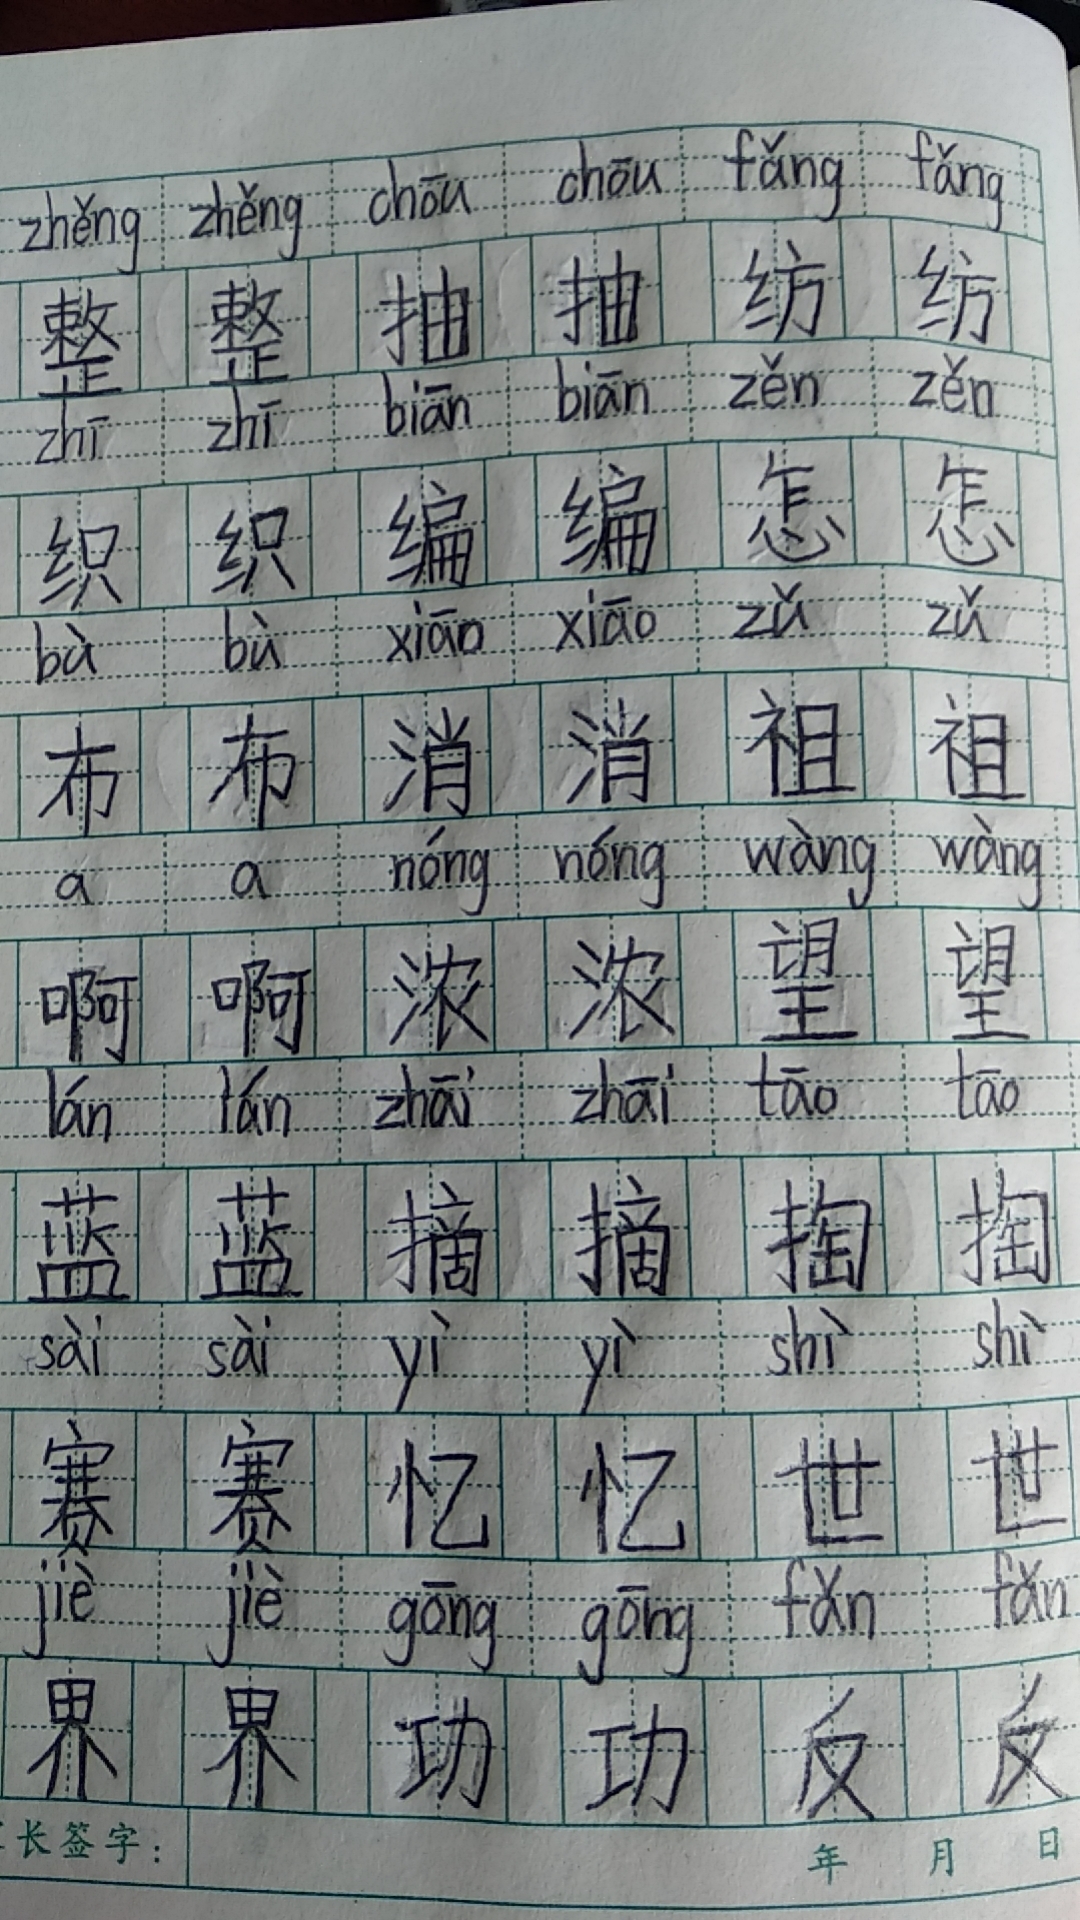 zhěng zhěng chōu chōu fǎng fǎng
整 整 抽 抽 纺 纺
zhī zhī biān biān zěn zěn
织 织 编 编 怎 怎
bù bù xiāo xiāo zǔ zǔ
布 布 消 消 祖 祖
a a nóng nóng wàng wàng
啊 啊 浓 浓 望 望
lán lán zhāi zhāi tāo tāo
蓝 蓝 摘 摘 掏 掏
sài sài yì yì shì shì
赛 赛 忆 忆 世 世
jiè jiè gōng gōng fǎn fǎn
界 界 功 功 反 反
长签字: 年 月 日